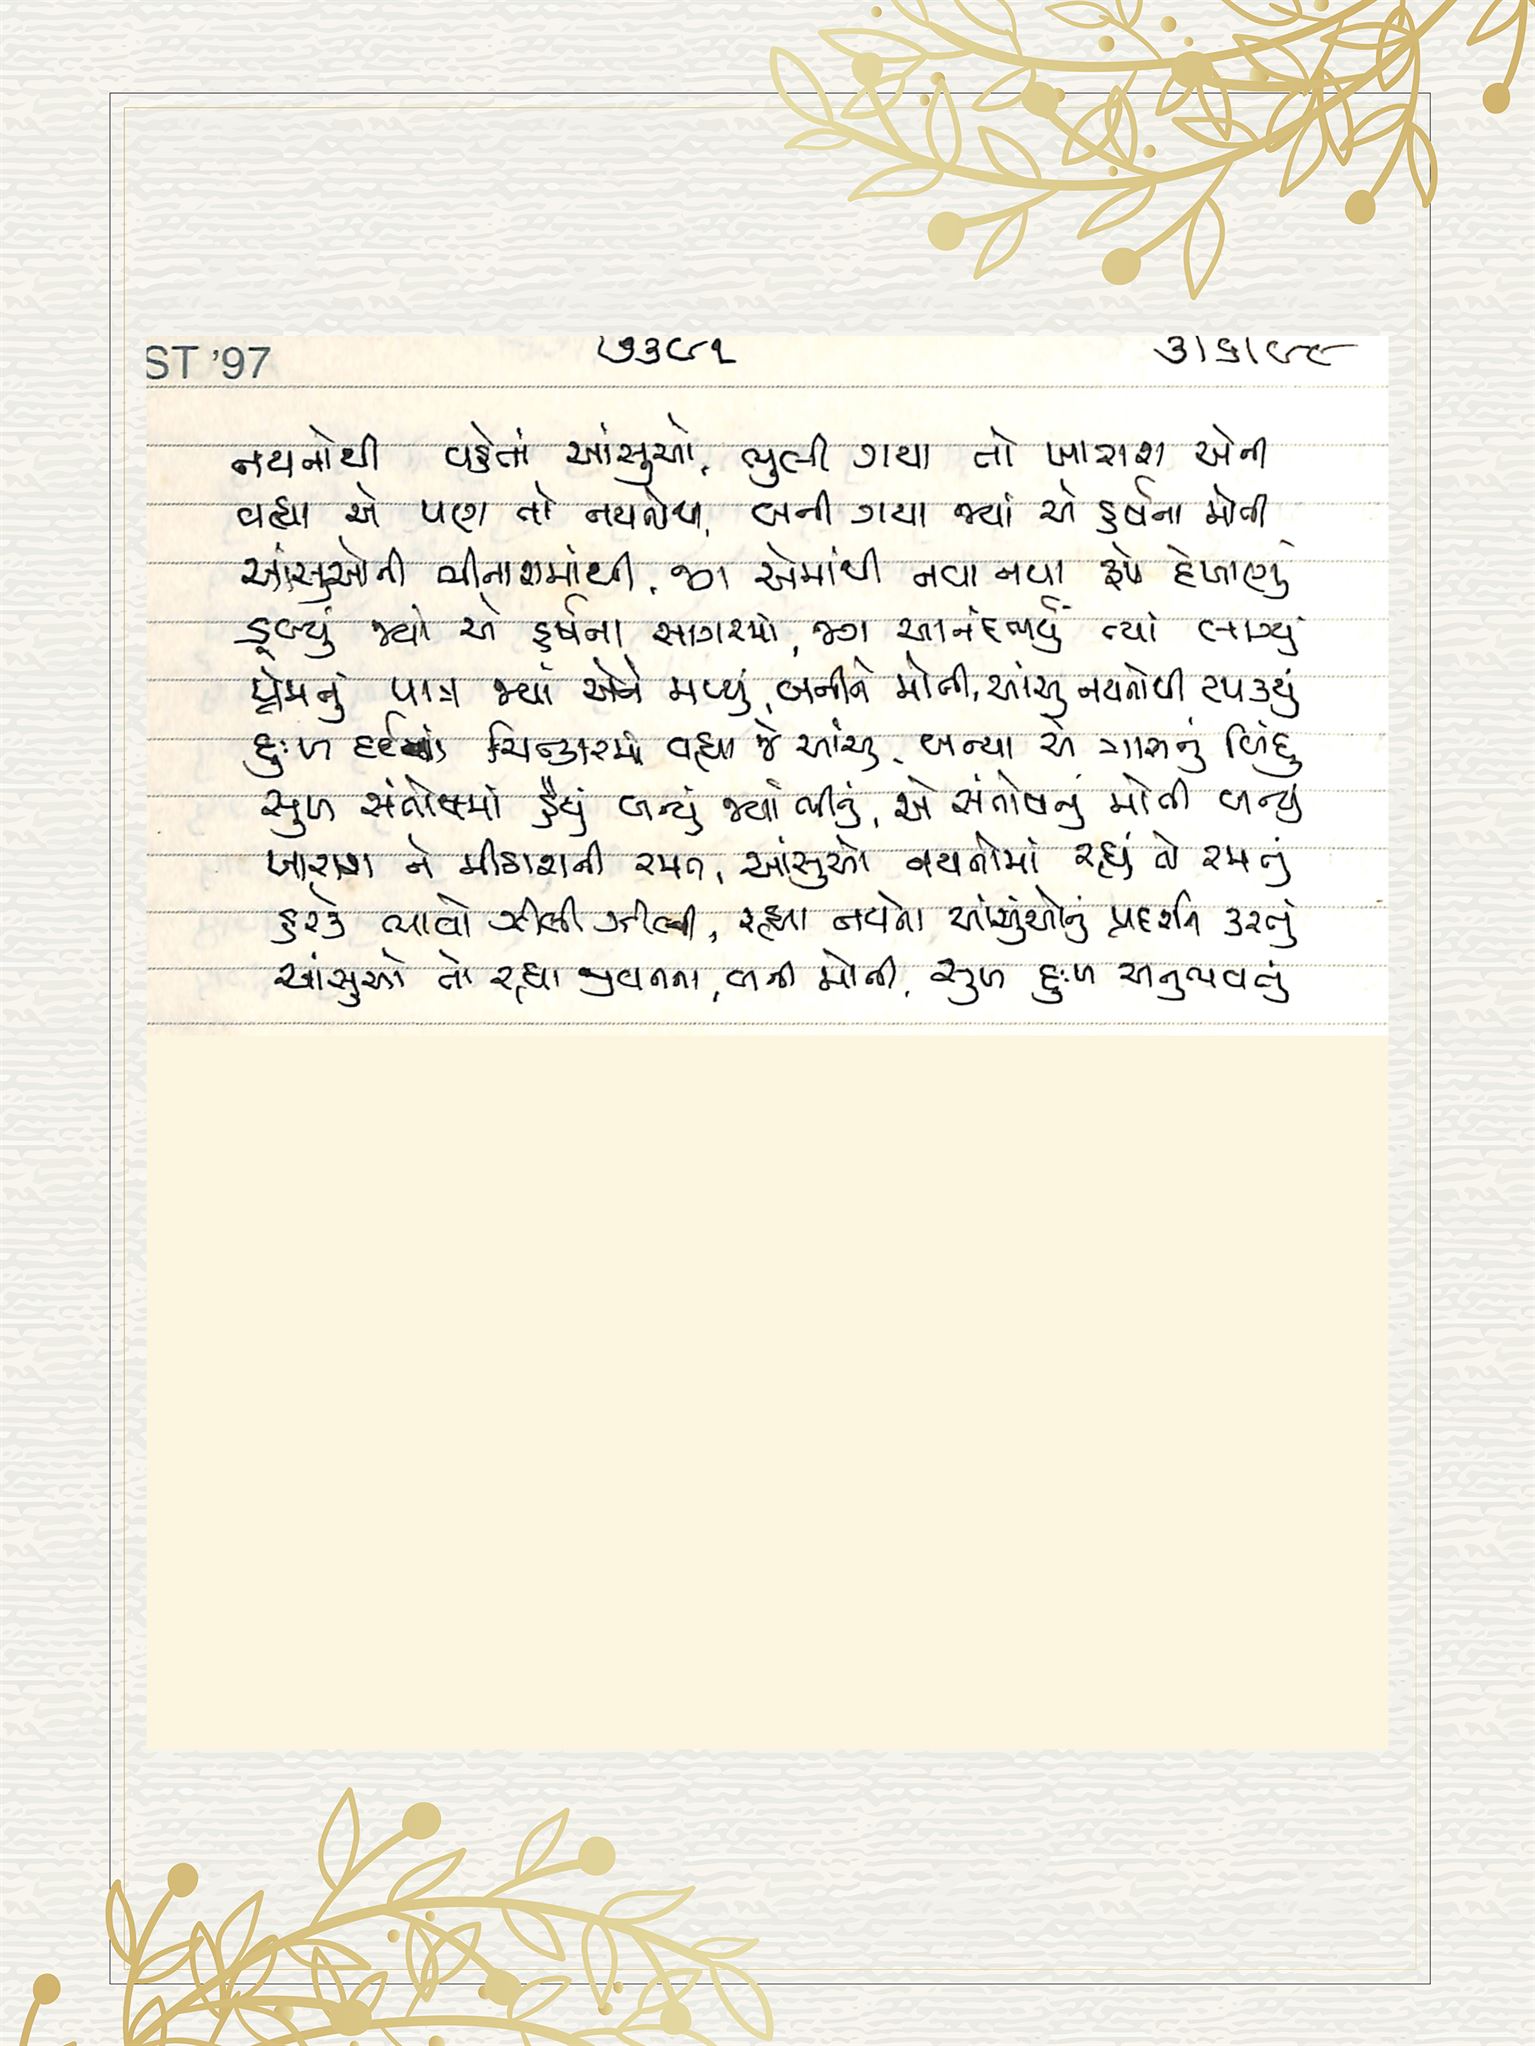 ST '97 ૭૩૯૧ ૩।૬।૯૯
નયનોથી વહેતાં આંસુઓ, ભુલી ગયા તો ખારાશ એની
વહ્યા એ પણ તો નયનોથી, બની ગયા જ્યાં એ હર્ષના મોતી
આંસુઓની ભીનાશમાંથી, જગ એમાંથી નવા નવા રૂપે દેખાણું
ડૂબ્યું જ્યાં એ હર્ષના સાગરમાં, જગ આનંદભર્યું ત્યાં લાગ્યું
પ્રેમનું પાત્ર જ્યાં એને મળ્યું, બનીને મોતી, આંસુ નયનોથી ટપક્યું
દુઃખ દર્દમાં ચિત્કારમાં વહ્યા જે આંસુ, બન્યા એ ત્રાસનું બિંદુ
સુખ સંતોષમાં હૈયું બન્યું જ્યાં ભીનું, એ સંતોષનું મોતી બન્યું
ખારાશ ને મીઠાશની રમત, આંસુઓ નયનોમાં રહ્યું તે રમતું
હરકે ભાવો ઝીલી ઝીલી, રહ્યા નયનો આંસુઓનું પ્રદર્શન કરતું
આંસુઓ તો રહ્યા જીવનના, બની મોતી, સુખ દુઃખ અનુભવતું